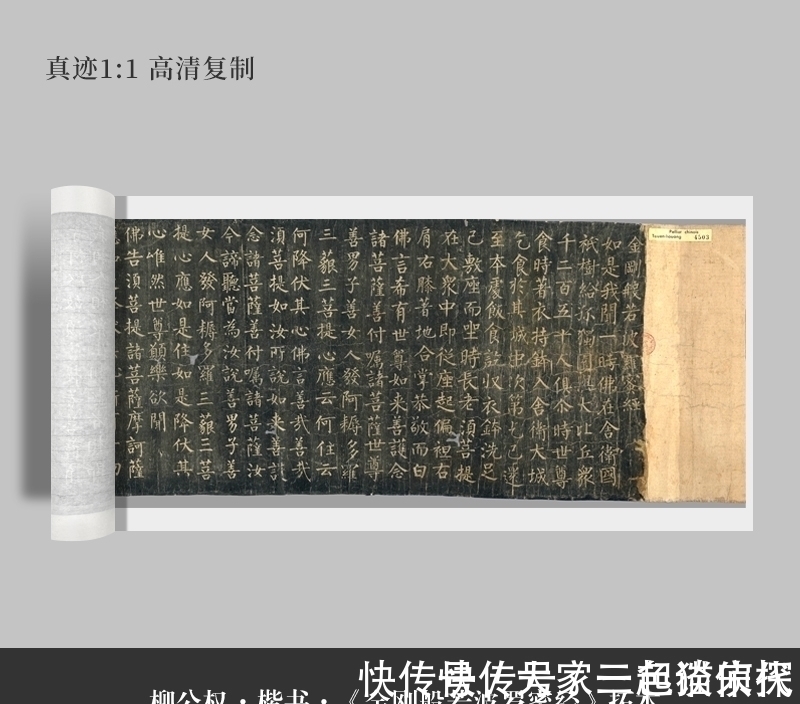 真迹1:1 高清复制
Pelliot chinois
Touen-houang 4503
金剛般若波羅蜜經
如是我聞一時佛在舍衛國
祇樹給孤獨園與大比丘眾
千二百五十人俱尒時世尊
食時著衣持鉢入舍衛大城
乞食於其城中次第乞已還
至本處飯食訖収衣鉢洗足
已敷座而坐時長老須菩提
在大眾中即從座起偏袒右
肩右膝著地合掌恭敬而白
佛言希有世尊如来善護念
諸菩薩善付囑諸菩薩世尊
善男子善女人發阿耨多羅
三藐三菩提心應云何住云
何降伏其心佛言善哉善哉
須菩提如汝所說如来善護
念諸菩薩善付囑諸菩薩汝
今諦聽當為汝說善男子善
女人發阿耨多羅三藐三菩
提心應如是住如是降伏其
心唯然世尊願樂欲聞
佛告須菩提諸菩薩摩訶薩
柳公权·楷书·《金刚般若波罗蜜经》拓本
快传